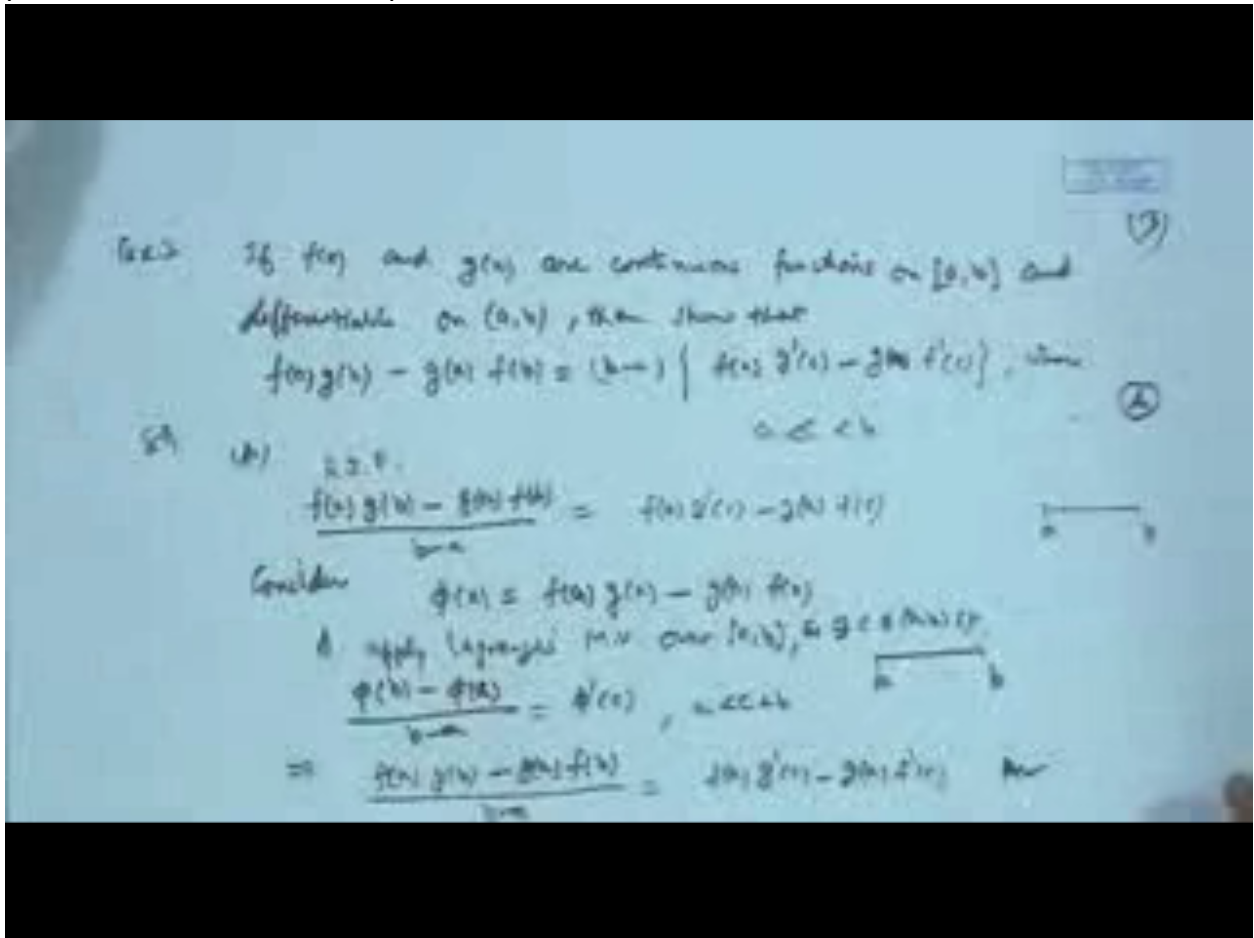 (3)
If f(x) and g(x) are continuous functions on [a,b] and
differentiable on (a,b), then show that
f(a) g(b) - g(a) f(b) = (b-a) { f(a) g'(c) - g(a) f'(c) },
a < c < b
f(a) g(b) - g(a) f(b) / b-a = f(a) g'(c) - g(a) f'(c)
a b
Consider φ(x) = f(a) g(x) - g(a) f(x)
& apply Lagranges M.V. over [a,b],
a b
φ(b) - φ(a) / b-a = φ'(c), a<c<b
⇒ f(a) g(b) - g(a) f(b) / b-a = f(a) g'(c) - g(a) f'(c)